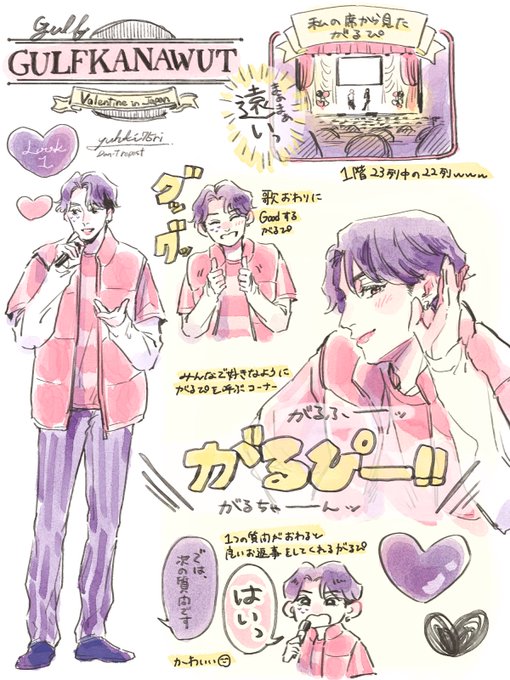 Gulf
GULFKANAWUT
Valentine in Japan
Look
1
私の席から見た
がるぴ
まあまあ
遠いっ
1階23列中の22列www
グッグッ
歌おわりに
Goodする
がるぴ
みんなで好きなように
がるぴを呼ぶコーナー
がるふーーッ
がるぴー!!
がるちゃーーんッ
1つの質問がおわると
良いお返事をしてくれるがるぴ
では、
次の質問です
はいっ
かわいい